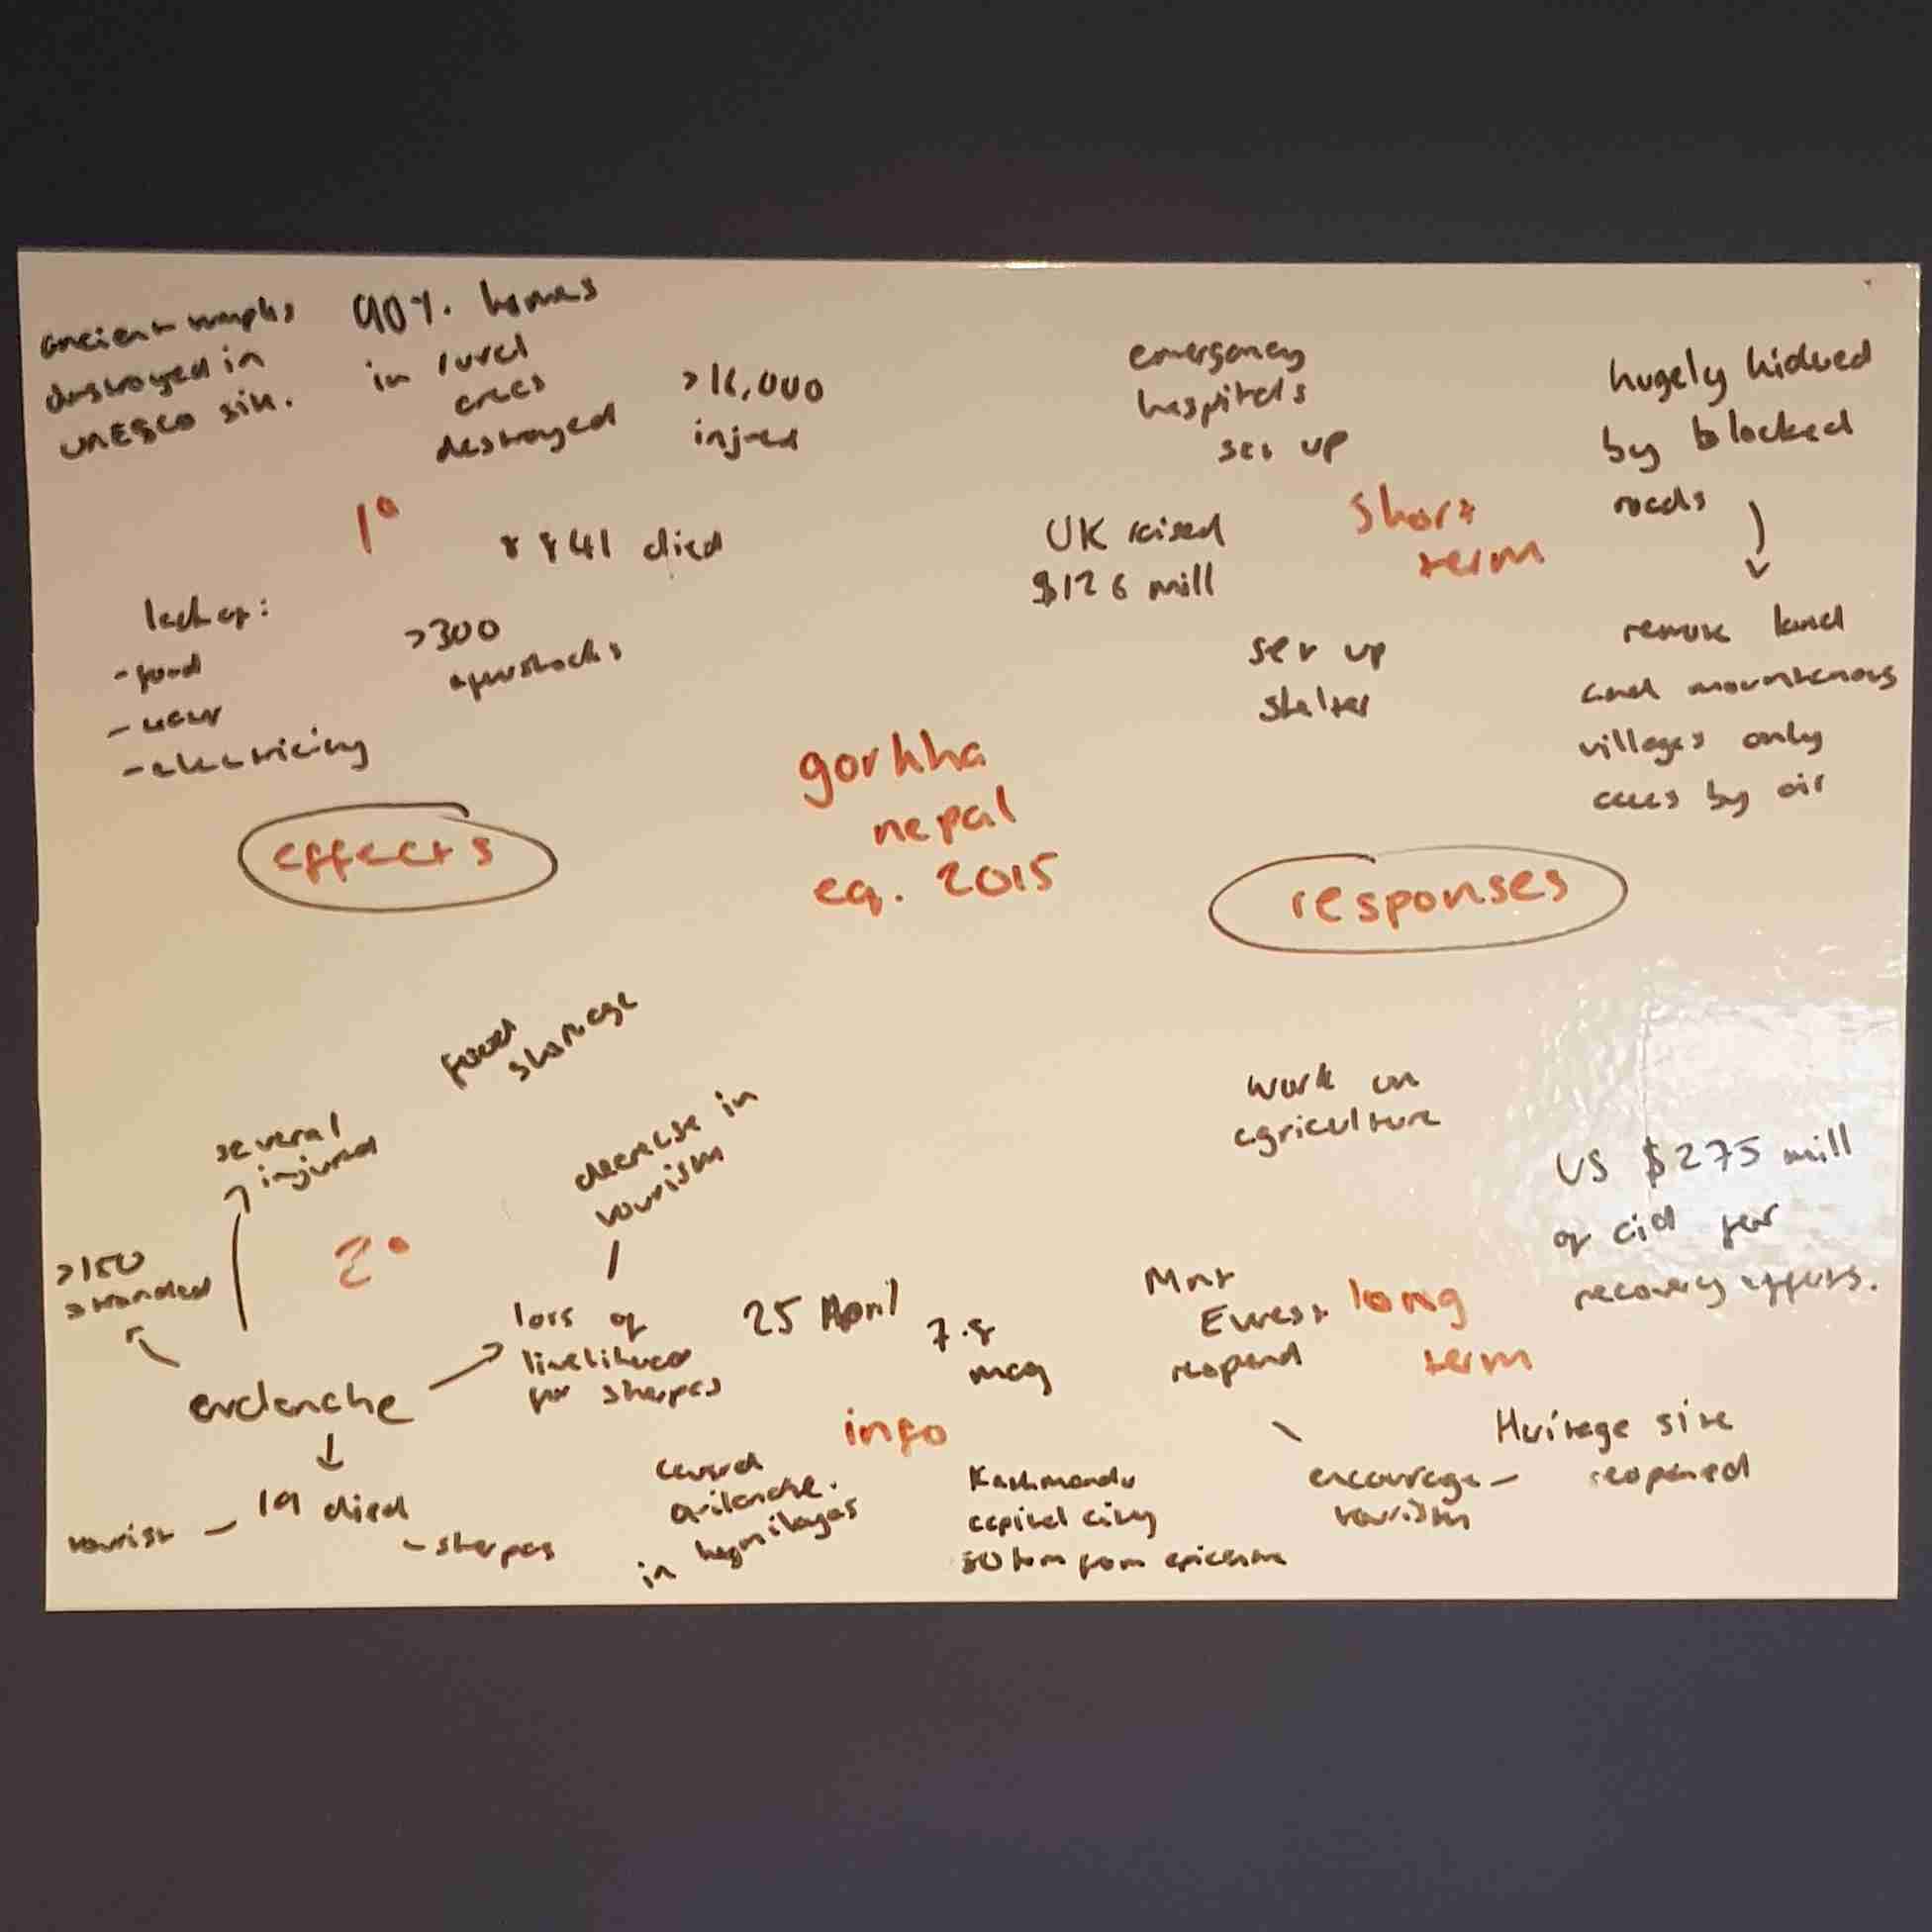 ancient temples
destroyed in
UNESCO site.
90% homes
in rural
areas
destroyed
>16,000
injured
1°
8841 died
lack of:
- food
- water
- electricity
>300
aftershocks
effects
gorkha
nepal
eq. 2015
emergency
hospitals
set up
UK raised
$126 mill
short
term
set up
shelter
hugely hidued
by blocked
roads
remote land
and mountenous
villages only
acces by air
responses
food
shortage
several
injured
decrease in
tourism
2°
>150
stranded
loss of
livelihood
for sherpas
avalanche
19 died
tourist –
- sherpas
25 April
7.8
mag
info
caused
avilanche.
in
Kathmandu
capital city
80 km from epicentre
work on
agriculture
US $275 mill
of aid for
recovery efforts.
Mnt
Everest
reopend
long
term
encourage –
tourism
Heritage site
reopened